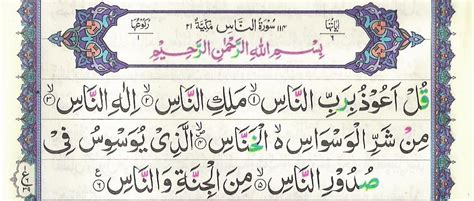 اٰيَاتُهَا ٦ ١١٤ سُوْرَةُ النَّاسِ مَكِّيَّةٌ ٢١ رُكُوْعُهَا ١
بِسْمِ اللّٰهِ الرَّحْمٰنِ الرَّحِيْمِ
قُلْ اَعُوْذُ بِرَبِّ النَّاسِ ۙ﴿۱﴾ مَلِكِ النَّاسِ ۙ﴿۲﴾ اِلٰهِ النَّاسِ ۙ﴿۳﴾
مِنْ شَرِّ الْوَسْوَاسِ ۙ۬ الْخَنَّاسِ ۪ۙ﴿۴﴾ الَّذِيْ يُوَسْوِسُ فِيْ
صُدُوْرِ النَّاسِ ۙ﴿۵﴾ مِنَ الْجِنَّةِ وَ النَّاسِ ﴿۶﴾